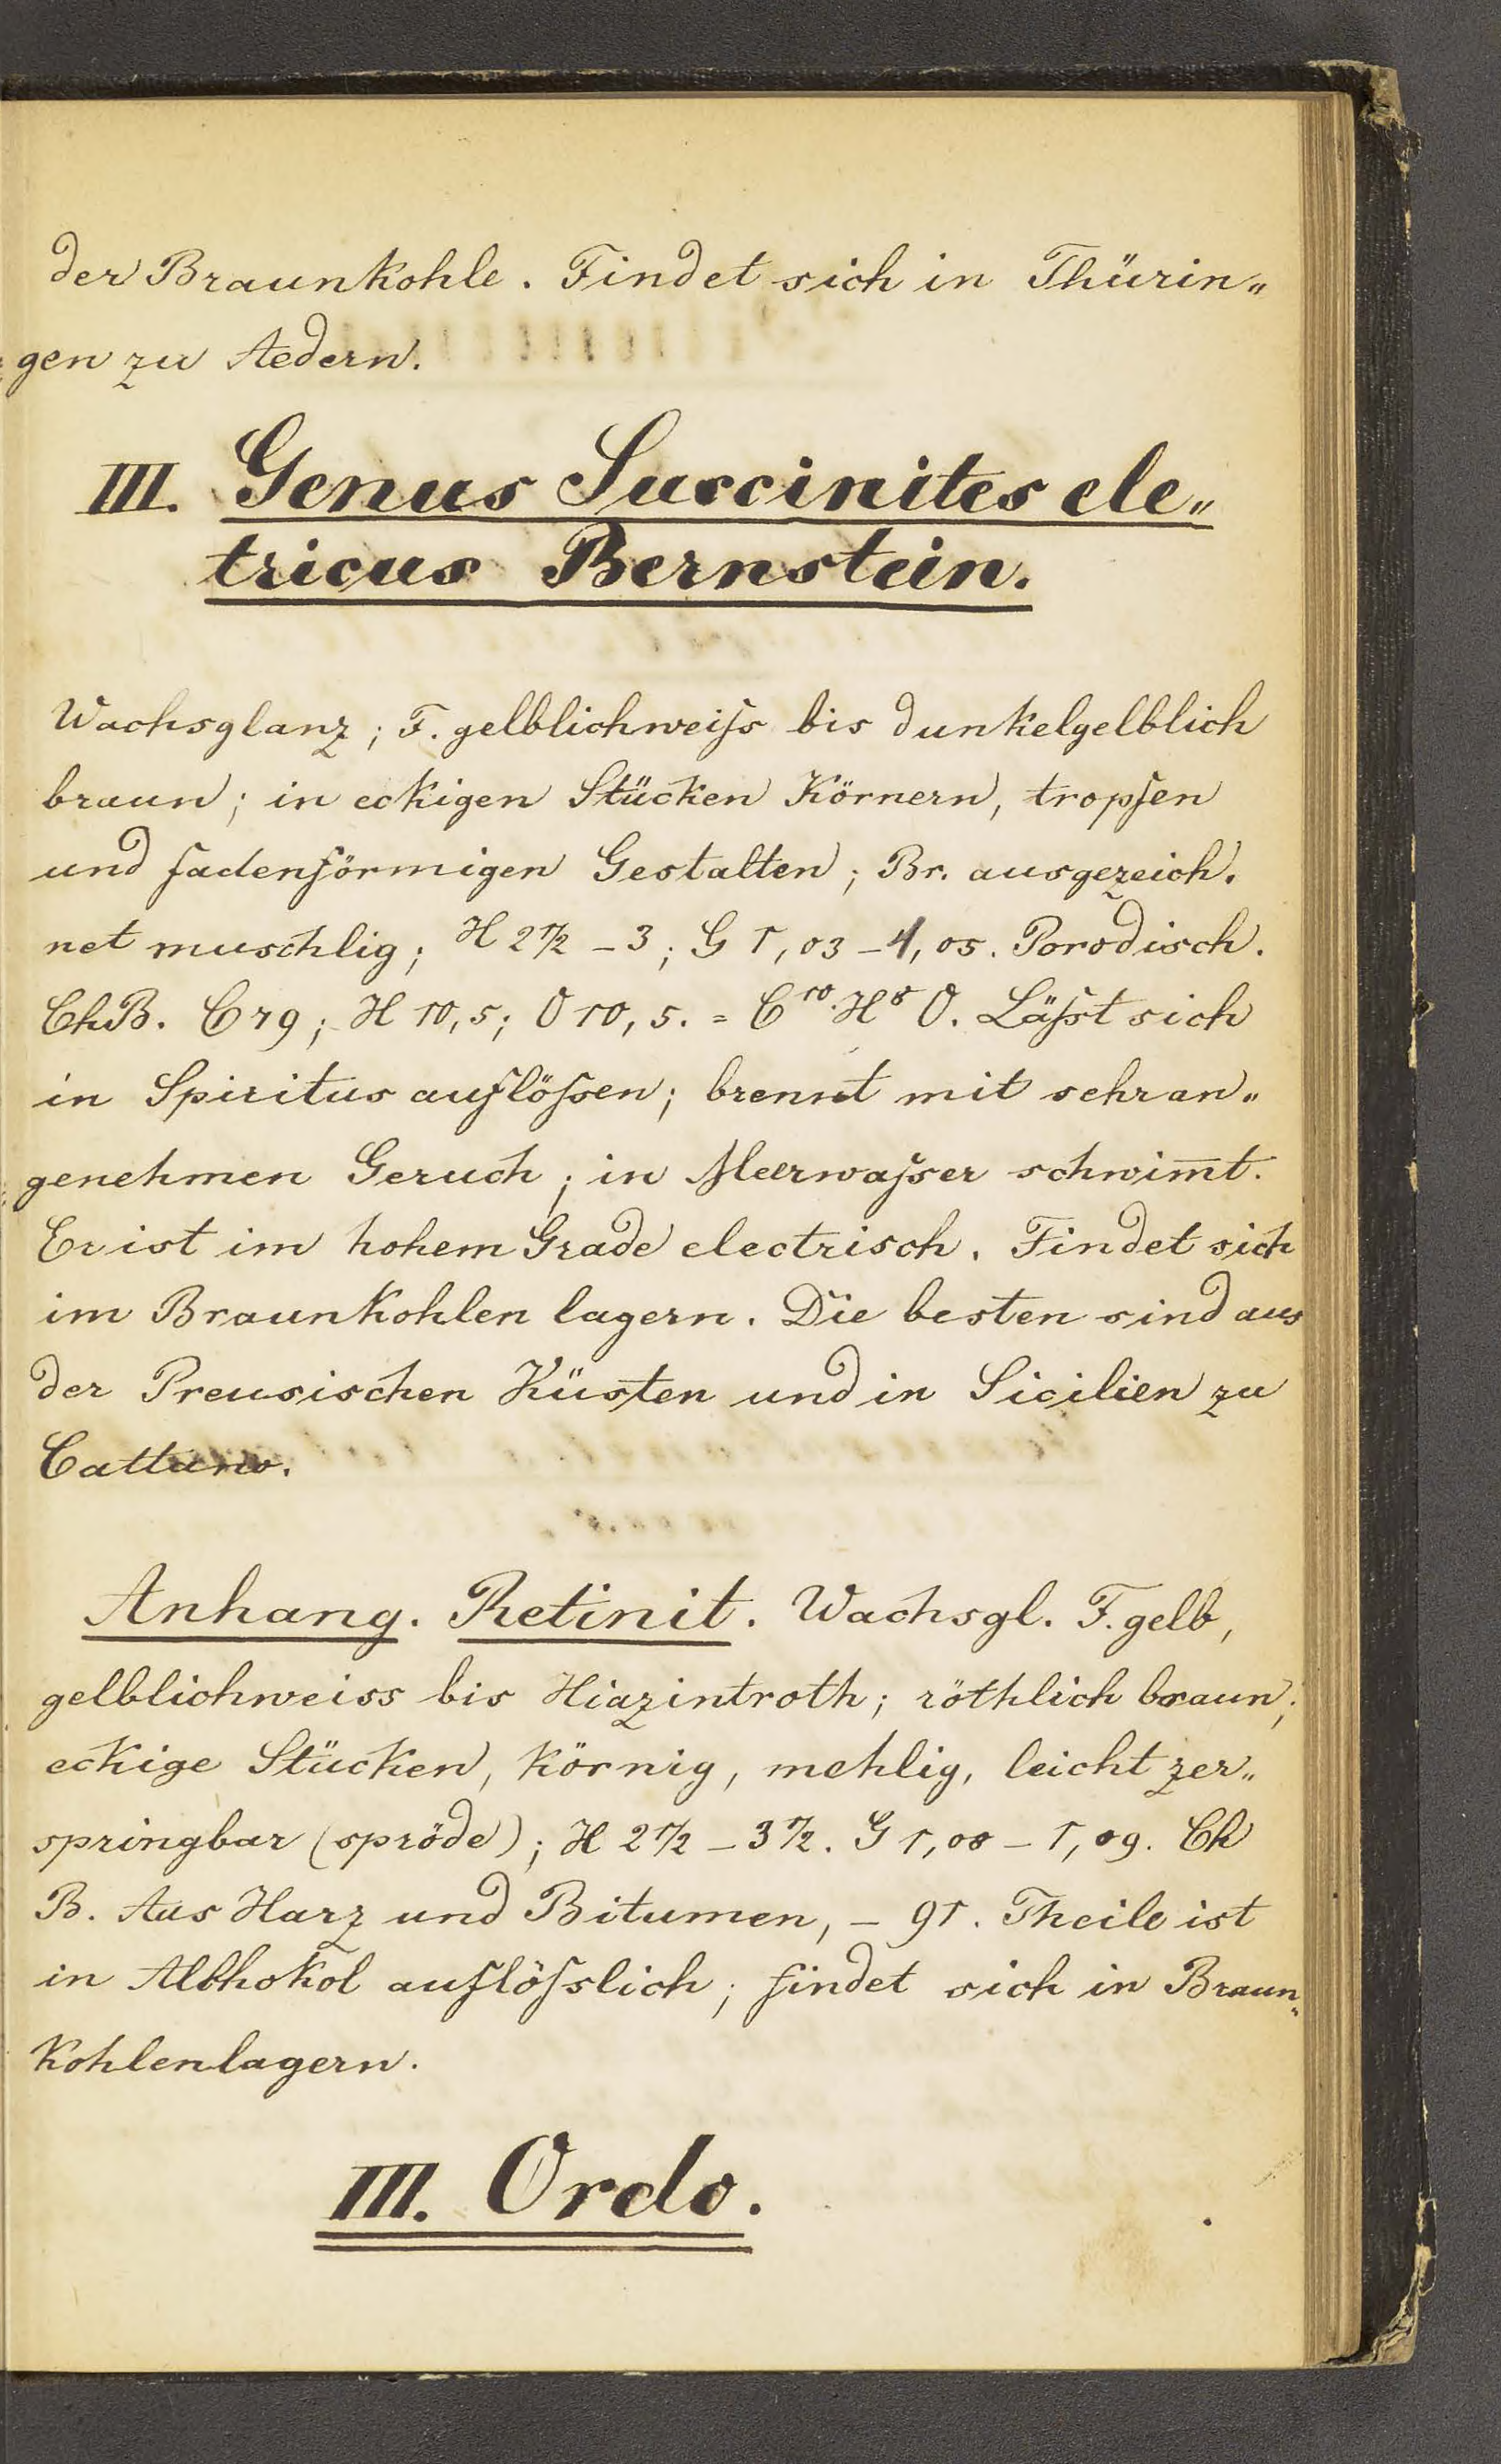 der Braunkohle. Findet sich in Thürin„
gen zu Aedern.
III. Genus Succinites ele„
tricus Bernstein.
Wachsglanz; F. gelblichweiſs bis dunkelgelblich
braun; in eckigen Stücken Körnern, tropfen
und fadenförmigen Gestalten; Br. ausgezeich.
net muschlig; H 2 1/2 – 3; G 1,03 – 1,05. Porodisch.
ChB. C 79; H 10,5; O 10,5. = C¹⁰ H⁸ O. Läſst sich
in Spiritus auflöſsen; brennt mit sehr an„
genehmen Geruch; in Meerwaſser schwim̅t.
Er ist im hohem Grade electrisch. Findet sich
im Braunkohlen lagern. Die besten sind aus
der Preusischen Küsten und in Sicilien zu
Anhang. Retinit. Wachsgl. F. gelb,
gelblichweiss bis Hiazintroth; röthlich braun;
eckige Stücken, körnig, mehlig, leicht zer„
springbar (spröde); H 2 1/2 – 3 1/2. G 1,08 – 1,09. Ch
B. Aus Harz und Bitumen, – 91. Theile ist
in auflöſslich; findet sich in Braun„
kohlenlagern.
III. Ordo.